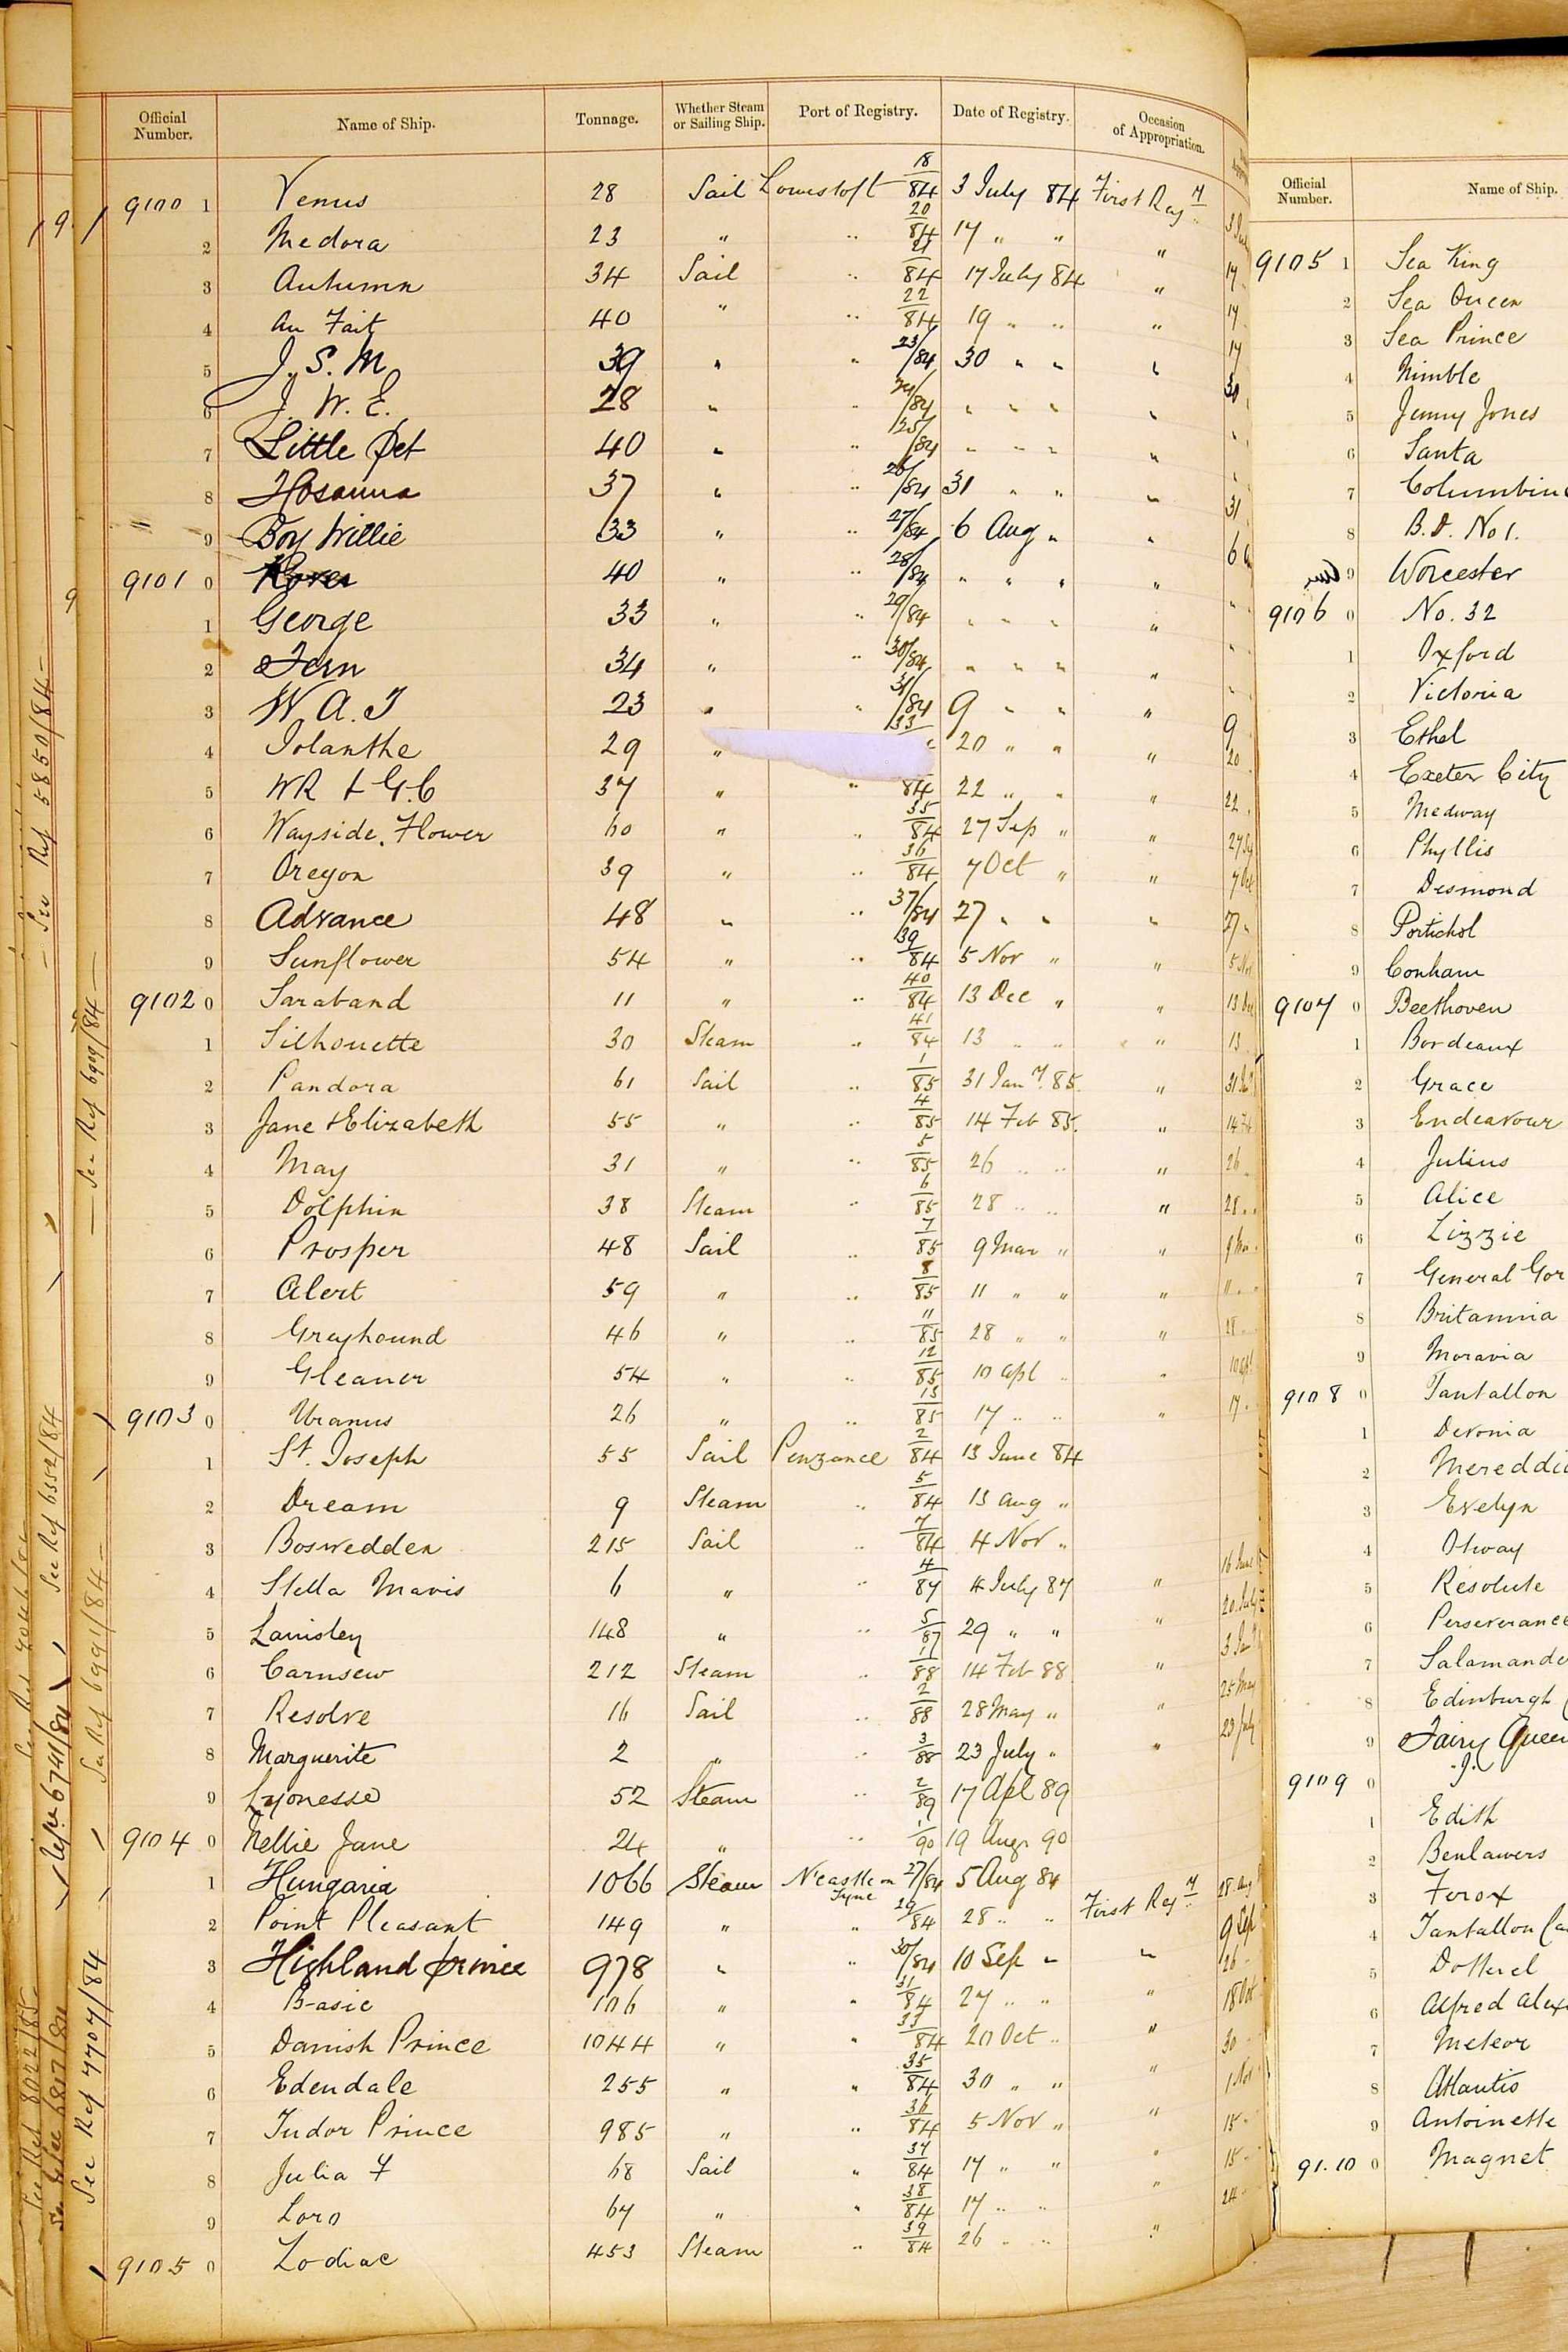 Official Number. Name of Ship. Tonnage. Whether Steam or Sailing Ship. Port of Registry. Date of Registry. Occasion of Appropriation.
9100 1 Venus 28 Sail Lowestoft 18/84 3 July 84 First Reg y
2 Medora 23 " " 20/84 17 " " "
3 Autumn 34 Sail " 21/84 17 July 84 "
4 Au Fait 40 " " 22/84 19 " " "
5 J. S. M 39 " " 23/84 30 " " "
6 J. W. E. 28 " " 24/84 " " " "
7 Little Pet 40 " " 25/84 " " " "
8 Hosanna 37 " " 26/84 31 " " "
9 Boy Willie 33 " " 27/84 6 Aug " "
9101 0 40 " " 28/84 " " " "
1 George 33 " " 29/84 " " " "
2 Fern 34 " " 30/84 " " " "
3 W A. T 23 " " 31/84 9 " " "
4 Iolanthe 29 " 33 20 " " "
5 WR & G.C 37 " " 84 22 " " "
6 Wayside Flower 60 " " 35/84 27 Sep " "
7 Oregon 39 " " 36/84 7 Oct " "
8 Advance 48 " " 37/84 27 " " "
9 Sunflower 54 " " 39/84 5 Nov " "
9102 0 Saraband 11 " " 40/84 13 Dec " "
1 Silhouette 30 Steam " 41/84 13 " " "
2 Pandora 61 Sail " 1/85 31 Jan y. 85. "
3 Jane & Elizabeth 55 " " 4/85 14 Feb 85. "
4 May 31 " " 5/85 26 " " "
5 Dolphin 38 Steam " 6/85 28 " " "
6 Prosper 48 Sail " 7/85 9 Mar " "
7 Alert 59 " " 8/85 11 " " "
8 Greyhound 46 " " 11/85 28 " " "
9 Gleaner 54 " " 12/85 10 Apl " "
9103 0 Uranus 26 " " 13/85 17 " " "
1 St. Joseph 55 Sail Penzance 2/84 13 June 84
2 Dream 9 Steam " 5/84 13 Aug "
3 Boswedden 215 Sail " 7/84 4 Nov "
4 Stella Mavis 6 " " 4/87 4 July 87 "
5 148 " " 5/87 29 " " "
6 Carnsew 212 Steam " 1/88 14 Feb 88 "
7 Resolve 16 Sail " 2/88 28 May " "
8 Marguerite 2 " " 3/88 23 July " "
9 Lyonesse 52 Steam " 2/89 17 Apl 89
9104 0 Nellie Jane 24 " " 1/90 19 Augt 90
1 Hungaria 1066 Steam N'castle on Tyne 27/84 5 Aug 84
2 Point Pleasant 149 " " 29/84 28 " " First Reg y
3 Highland Prince 978 " " 30/84 10 Sep " "
4 Basic 106 " " 31/84 27 " " "
5 Danish Prince 1044 " " 33/84 20 Oct " "
6 Edendale 255 " " 35/84 30 " " "
7 Tudor Prince 985 " " 36/84 5 Nov " "
8 Julia F 68 Sail " 37/84 17 " " "
9 Loro 67 " " 38/84 17 " " "
9105 0 Zodiac 453 Steam " 39/84 26 " " "
See Ref 5850/84
See Ref 6909/84
See Ref 6352/84
See Ref 6991/84
6741/84
See Ref 8022/85
See Ref 7707/84
Official Number. Name of Ship.
9105 1 Sea King
2 Sea Queen
3 Sea Prince
4 Nimble
5 Jenny Jones
6 Santa
7 Columbine
8 B.D. No 1.
9 Worcester
9106 0 No. 32
1 Oxford
2 Victoria
3 Ethel
4 Exeter City
5 Medway
6 Phyllis
7 Desmond
8 Portichol
9 Conham
9107 0 Beethoven
1 Bordeaux
2 Grace
3 Endeavour
4 Julius
5 Alice
6 Lizzie
7 General Gor
8 Britannia
9 Moravia
9108 0 Tantallon
1 Devonia
2 Mereddi
3 Evelyn
4 Otway
5 Resolute
6 Perseverance
7 Salamande
8 Edinburgh
9 Fairy Queen
9109 0 J.
1 Edith
2 Benlawers
3 Ferox
4 Tantallon Ca
5 Dotterel
6 Alfred Alex
7 Meteor
8 Atlantis
9 Antoinette
91.10 0 Magnet